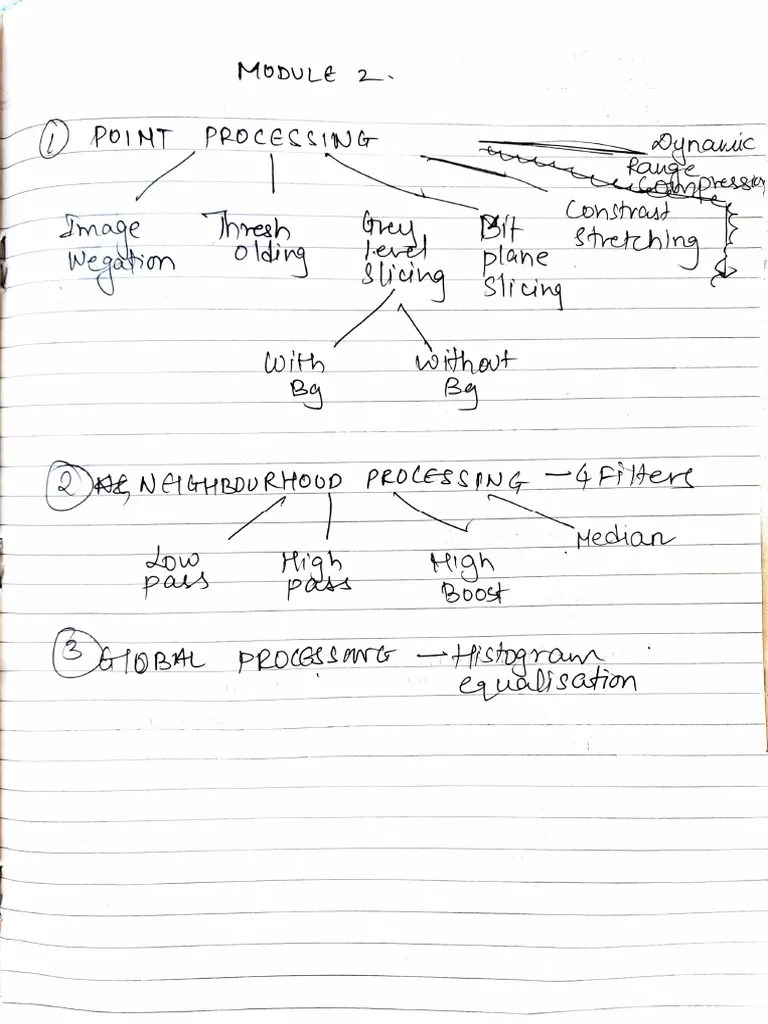 MODULE 2.
① POINT PROCESSING
Dynamic
Range
Compression
Image
Negation
Thresh
olding
Grey
level
Slicing
Bit
plane
Slicing
Constrast
Stretching
With
Bg
Without
Bg
② NEIGHBOURHOOD PROCESSING – 4 Filters
Low
pass
High
pass
High
Boost
Median
③ GLOBAL PROCESSING – Histogram
equalisation